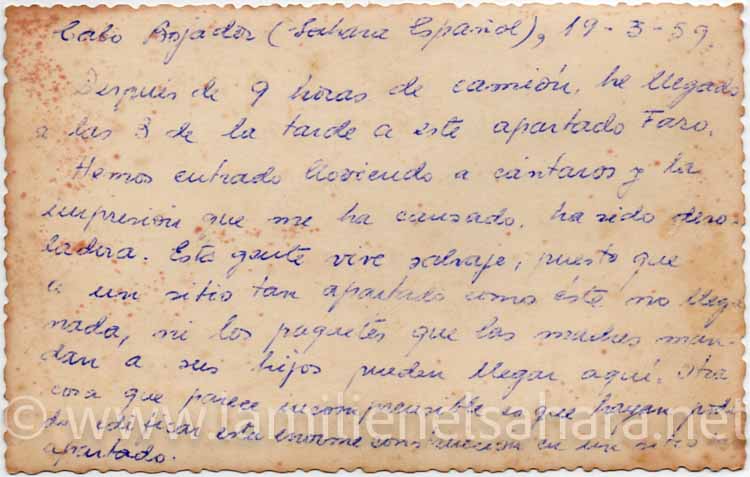 Cabo Bojador (Sahara Español), 19-3-59
Después de 9 horas de camión, he llegado
a las 3 de la tarde a este apartado Faro.
Hemos entrado lloviendo a cántaros y la
impresión que me ha causado, ha sido deso-
ladora. Esta gente vive salvaje, puesto que
a un sitio tan apartado como éste no llega
nada, ni los paquetes que las madres man-
dan a sus hijos pueden llegar aquí. Otra
cosa que parece incomprensible es que hayan podi-
do edificar esta enorme construcción en un sitio
apartado.
© www.lamilienelsahara.net